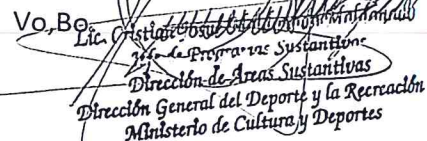 Vo,Bo.
Lic. Cristian Josué
Jefe de Programas Sustantivos
Dirección de Áreas Sustantivas
Dirección General del Deporte y la Recreación
Ministerio de Cultura y Deportes